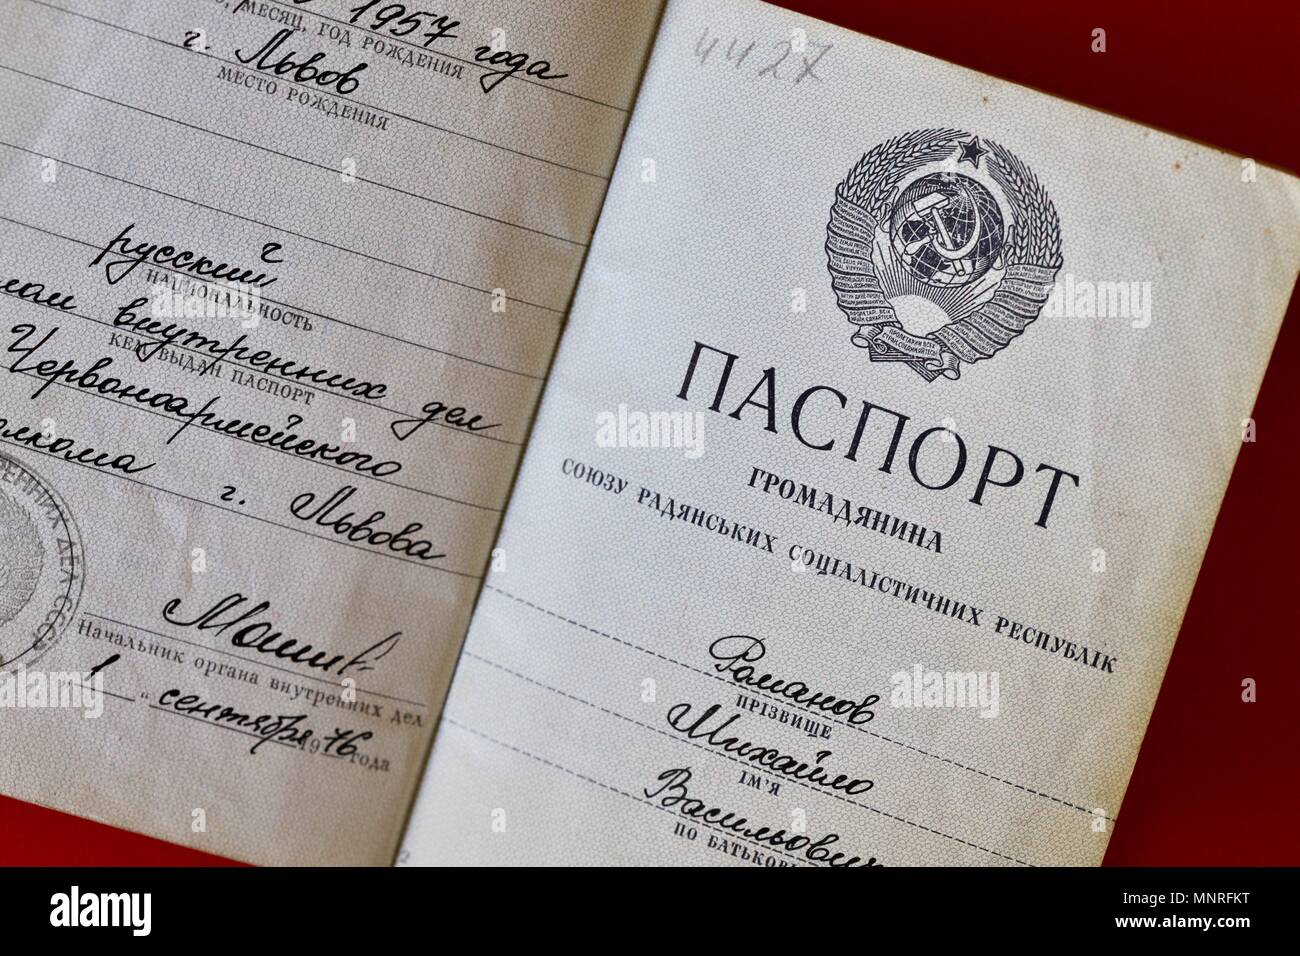 1957 года
МЕСЯЦ, ГОД РОЖДЕНИЯ
г. Львов
МЕСТО РОЖДЕНИЯ
русский
НАЦИОНАЛЬНОСТЬ
внутренних дел
КЕМ ВЫДАН ПАСПОРТ
Червоноармейского
г. Львова
Начальник органа внутренних дел
1 " сентября 1976 года
2
4427
ПРОЛЕТАРИИ ВСЕХ
СТРАН, СОЕДИНЯЙТЕСЬ!
ПАСПОРТ
ГРОМАДЯНИНА
СОЮЗУ РАДЯНСЬКИХ СОЦІАЛІСТИЧНИХ РЕСПУБЛІК
Романов
ПРІЗВИЩЕ
Михайло
ІМ'Я
Васильович
ПО БАТЬКОВІ
alamy
Image ID: MNRFKT
www.alamy.com